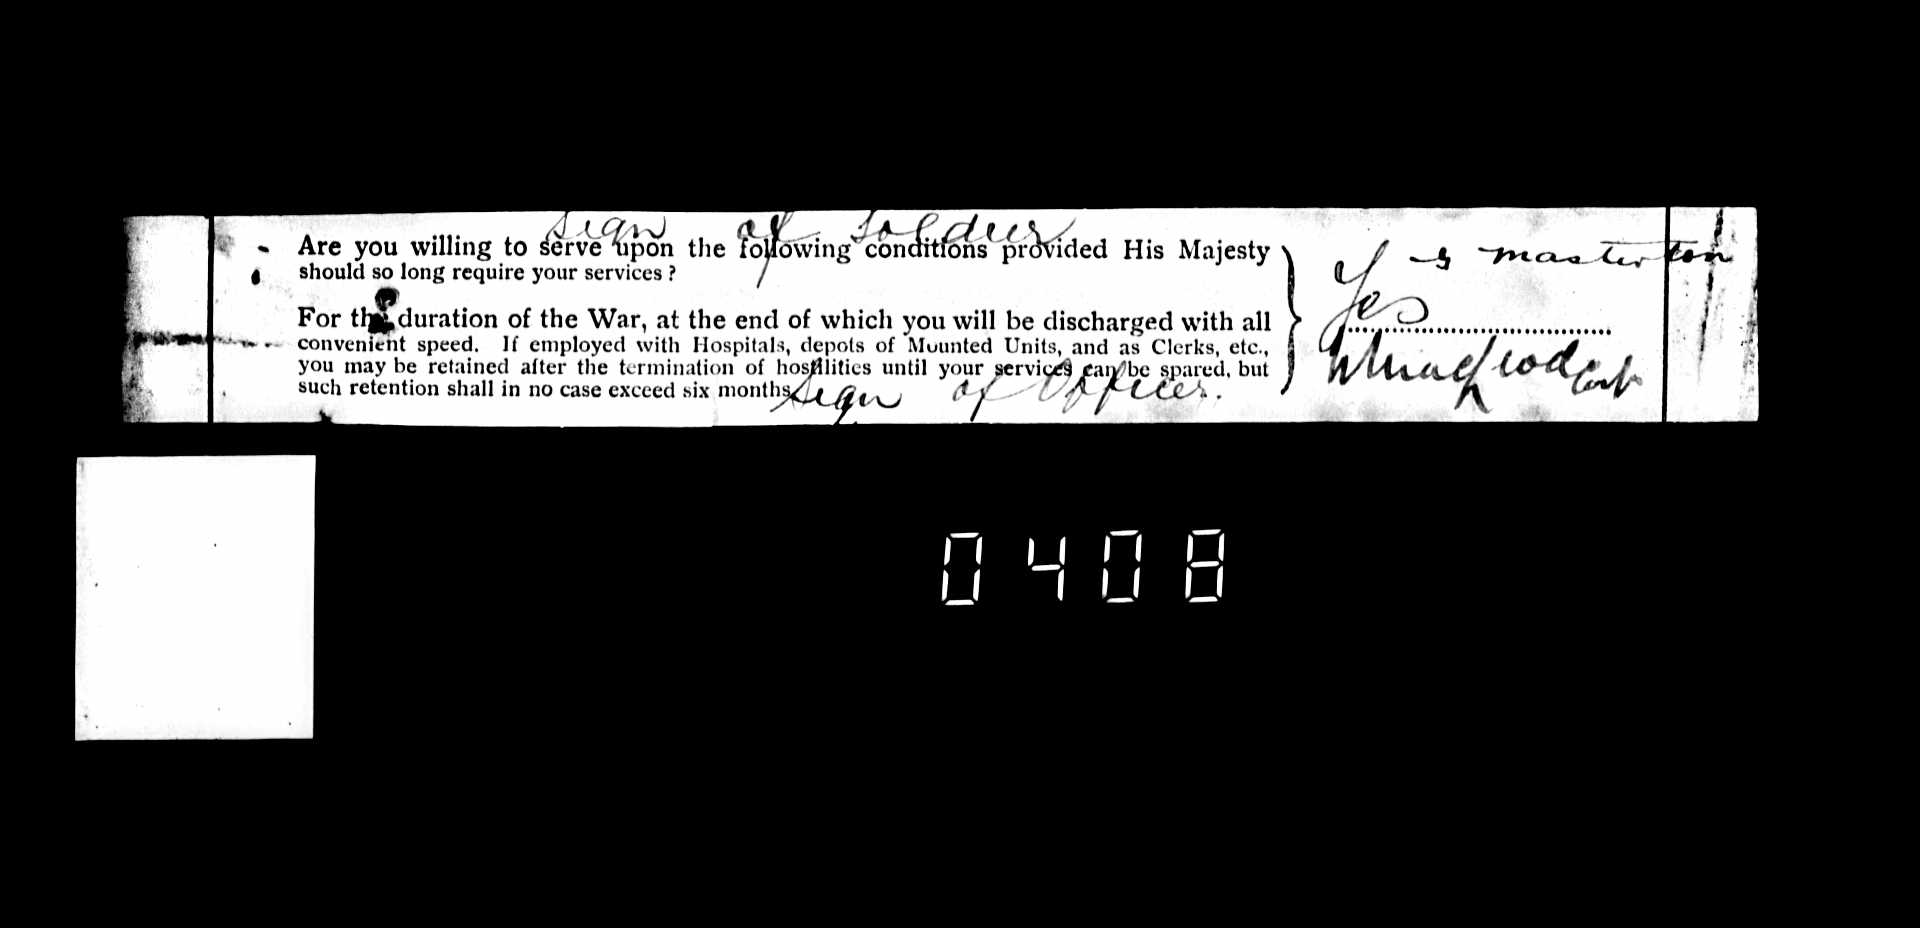 Sign of Soldier
Are you willing to serve upon the following conditions provided His Majesty
should so long require your services ?
masterton
Yes
For the duration of the War, at the end of which you will be discharged with all
convenient speed. If employed with Hospitals, depots of Mounted Units, and as Clerks, etc.,
you may be retained after the termination of hostilities until your services can be spared, but
such retention shall in no case exceed six months
Sign of Officer.
0408